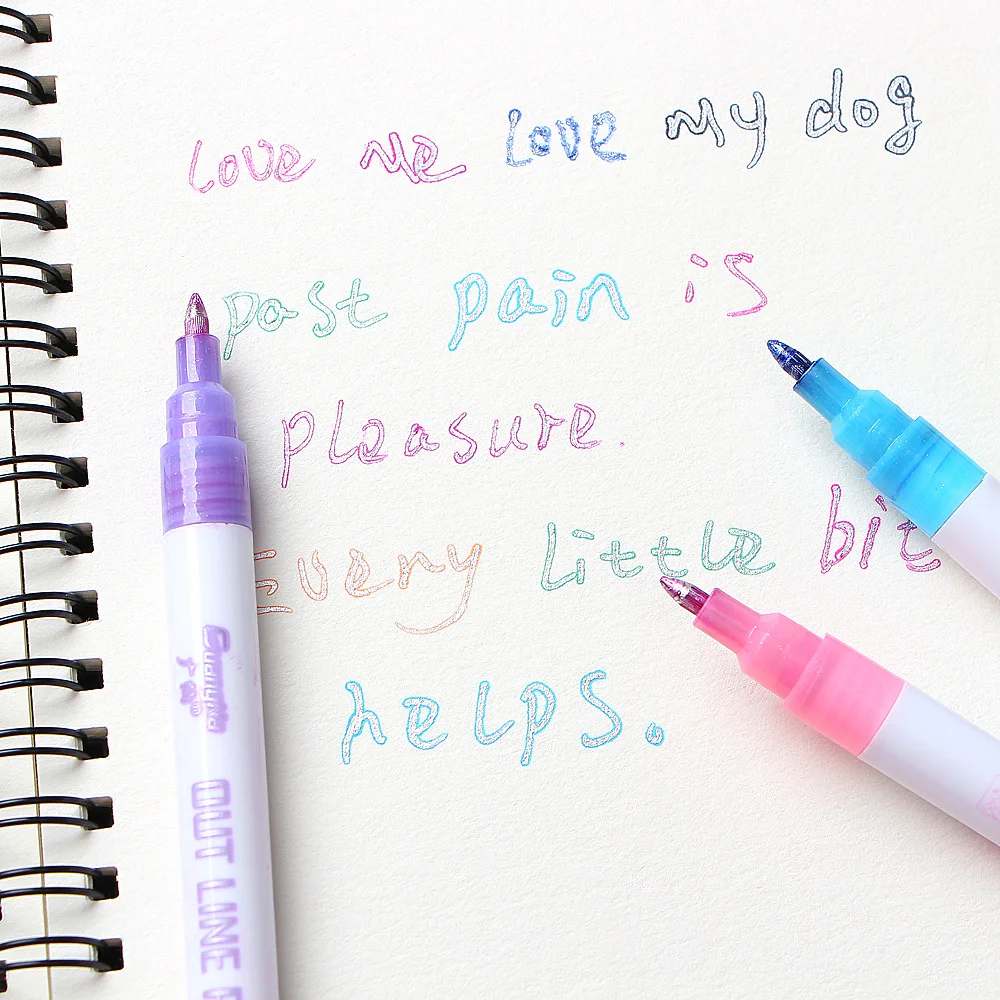 love me love my dog
past pain is
pleasure.
Every little bit
helps.
Guangna
OUT LINE